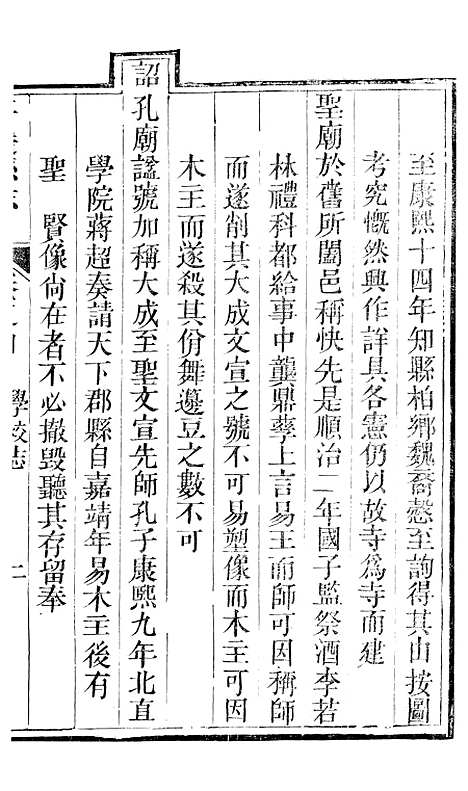 至康熙十四年知縣柏鄉魏裔慤至詢得其由按圖
考究慨然興作詳具各憲仍以故寺爲寺而建
聖廟於舊所闔邑稱快先是順治二年國子監祭酒李若
林禮科都給事中龔鼎孳上言易王而師可因稱師
而遂削其大成文宣之號不可易塑像而木主可因
木主而遂殺其佾舞籩豆之數不可
詔孔廟諡號加稱大成至聖文宣先師孔子康熙九年北直
學院蔣超奏請天下郡縣自嘉靖年易木主後有
聖　賢像尙在者不必撤毀聽其存留奉
學校志　二